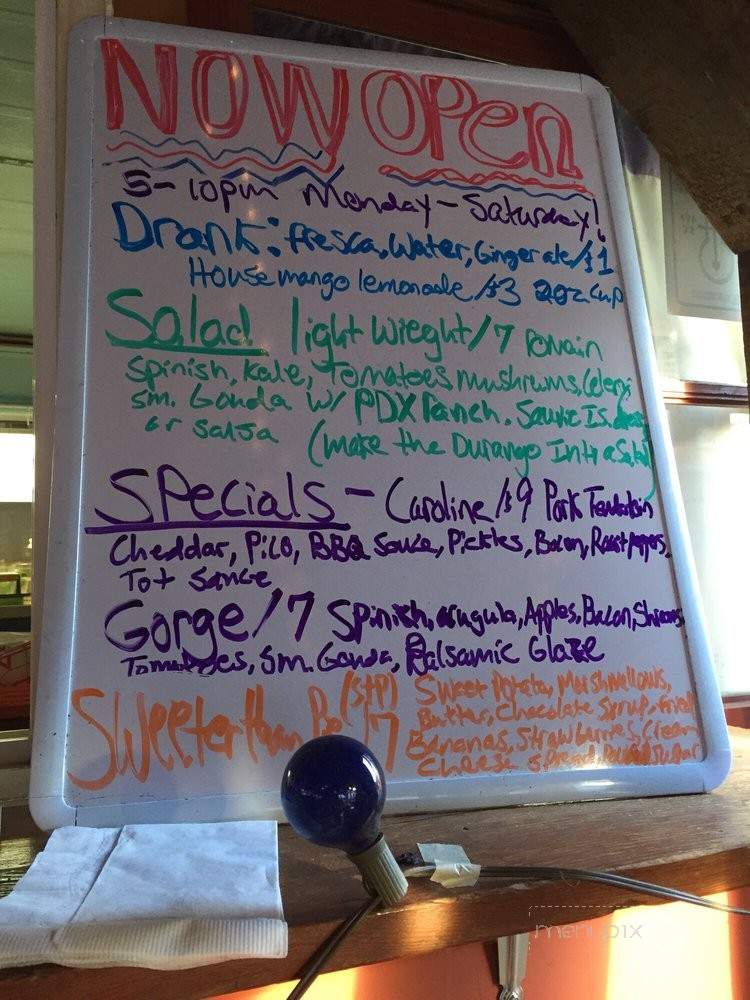 NOW OPen
5-10pm Monday - Saturday!
Drank: fresca, Water, Ginger ale/$1
House mango lemonade/$3 20z cup
Salad light Wieght/7 Romain
Spinish, Kale, Tomatoes mushrums, Celery
sm. Gouda w/ PDX Ranch.
or salsa (make the Durango Into a Salad)
Specials - Caroline/$9 Pork Tenderloin
Cheddar, Pico, BBQ Sauce, Pickles, Bacon, Roast Peppers,
Tot Sauce
Gorge/7 Spinish, arugula, Apples, Bacon, Shrooms
Tomatoes, Sm. Gouda, Balsamic Glaze
Sweeter than (STP) 7 Sweet Potato, Marshmallows,
Butter, Chocolate Syrup, fried
Bananas, Strawberries, Cream
Cheese Spread, Powdered Sugar
menupix